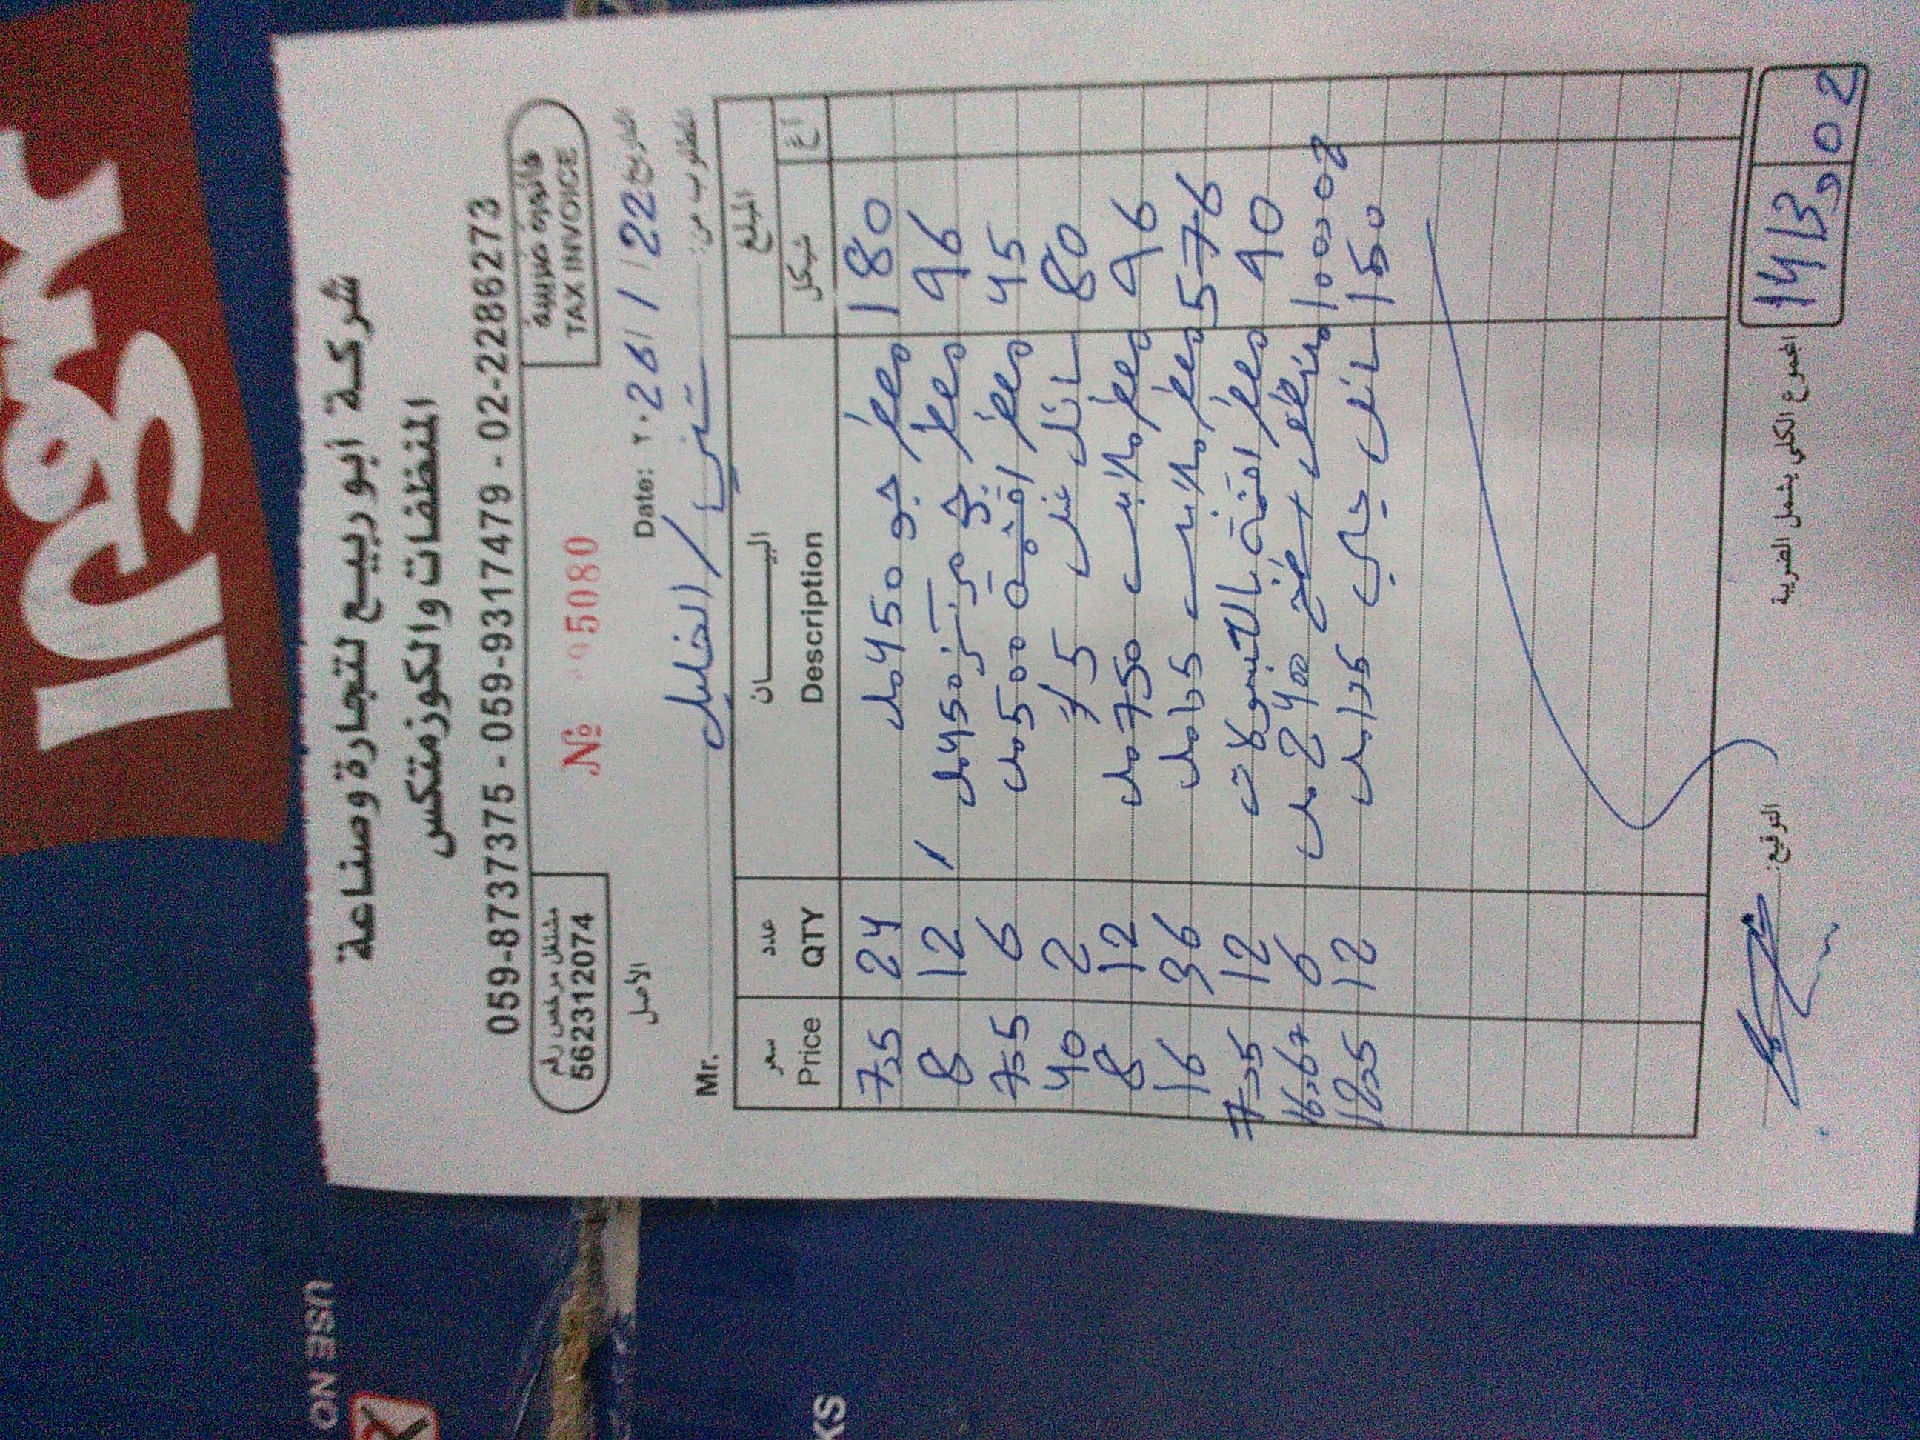 شركة أبو ربيع لتجارة وصناعة
المنظفات والكوزمتكس
059-8737375 - 059-9317479 - 02-2286273
مشتغل مرخص رقم
562312074
№ 95080
فاتورة ضريبية
TAX INVOICE
الأصل
Date: ٢٠26 / 1 / 22 التاريخ
Mr. الخليل / المطلوب من:
سعر عدد البيـــــان المبلغ
Price QTY Description شيكل أغ
7.5 24 معطر جو 450 مل 180
8 12 معطر جو مركز 450 مل 96
7.5 6 معطر اقمشة 500 مل 45
40 2 سائل غسيل 80
8 12 معطر ملابس 750 مل 96
16 36 معطر ملابس مل 576
7.5 12 معطر اقمشة 90
16.67 6 2400 مل 100.02
12.5 12 سائل جلي مل 150
التوقيع:
المجموع الكلي يشمل الضريبة 1413.02
USE NO
KS